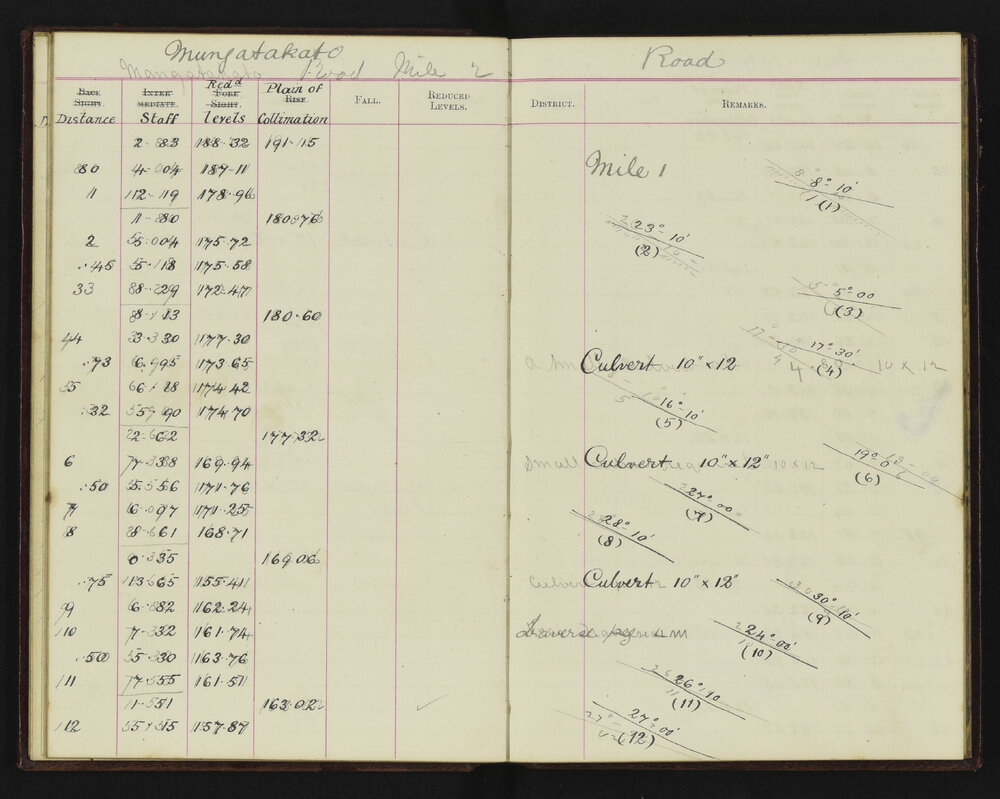 Mungatakato Road
Road Mile 2
BACK SIGHT. INTER MEDIATE. FORE SIGHT. RISE. FALL. REDUCED LEVELS. DISTRICT. REMARKS.
Distance Staff Redd levels Plain of Collimation
2.83 188.32 191.15
80 4.04 187.11 Mile 1 8°10' (1)
1 12.19 178.96
11.80 180.76 23°10' (2)
2 5.04 175.72
.45 5.18 175.58
33 172.47 5°00 (3)
8.13 180.60
4 3.30 177.30 17°30' (4)
.73 6.95 173.65 Culvert 10" x 12 10 x 12
5 174.42
.32 174.70 16°10' (5)
2.62 177.32
6 7.38 169.94 Small Culvert 10" x 12" 10 x 12 (6)
.50 5.56 171.76
7 171.25 27°00' (7)
8 8.61 168.71 28°10' (8)
0.35 169.06
.75 13.65 155.41 Culvert 10" x 12" 30°10' (9)
9 6.82 162.24
10 7.32 161.74 24°00' (10)
.50 5.30 163.76
11 161.51 26°10 (11)
1.51 163.02
12 157.87 27°00' (12)